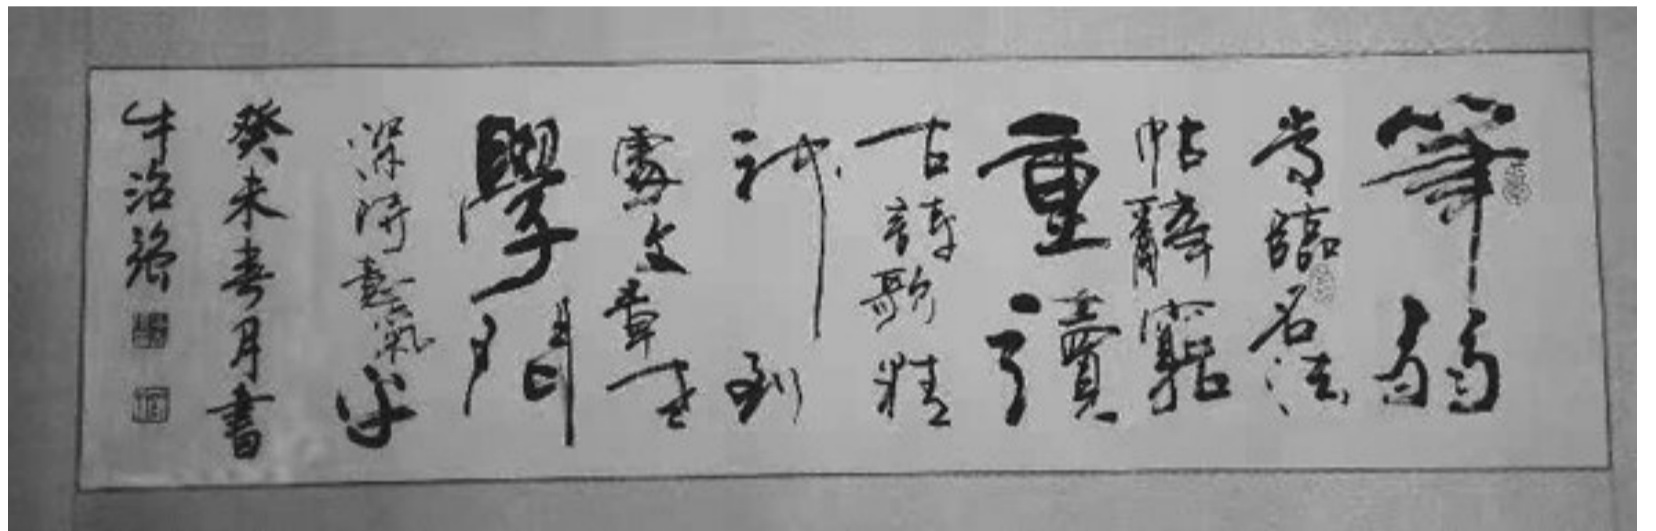 筆弱
常臨名法
帖辭窮
重讀
古詩歌精
神到
處文章老
學問
深時意氣平
癸未春月書
牛治